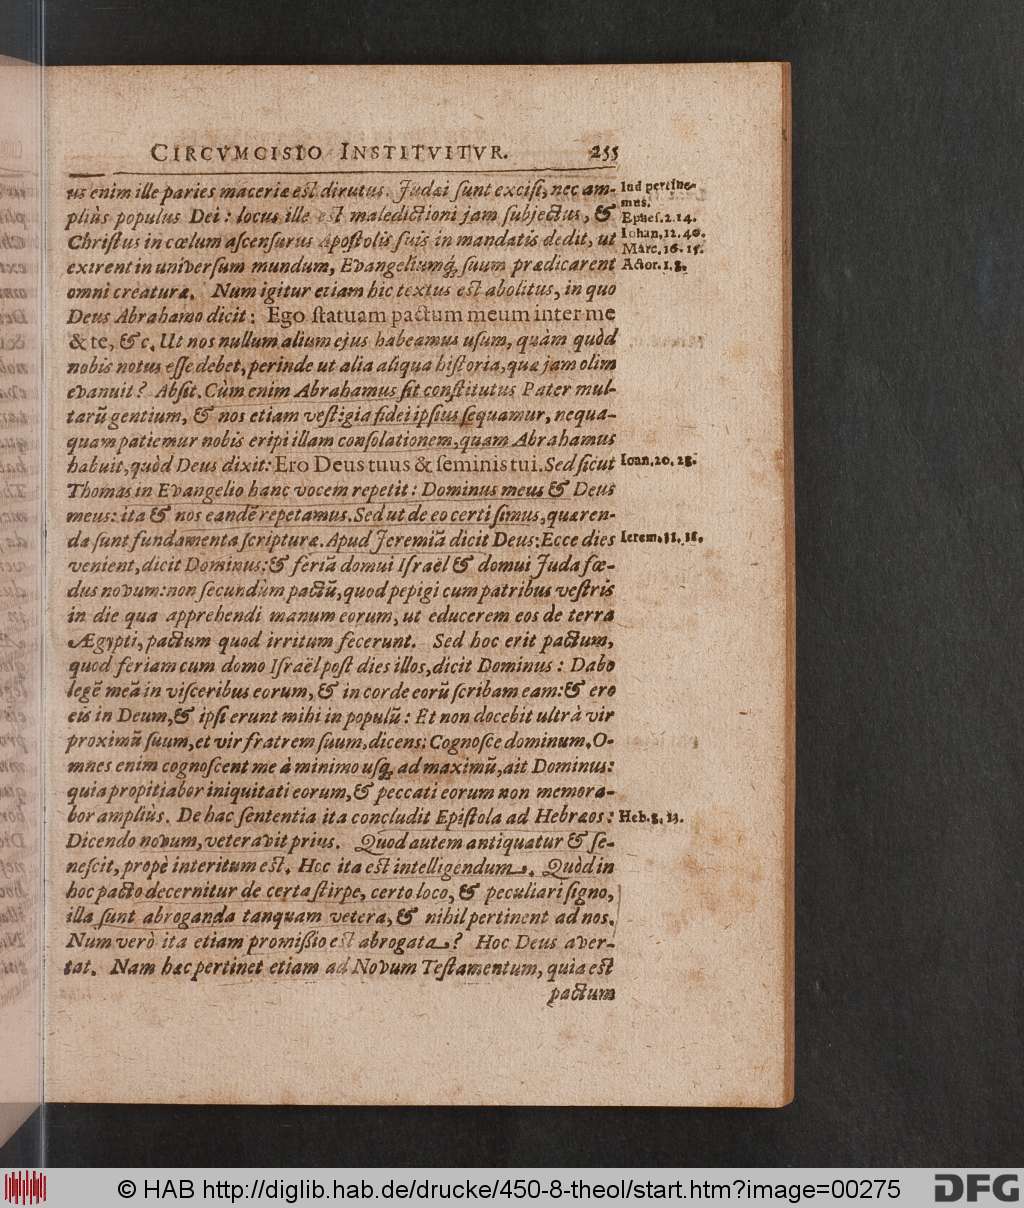 CIRCVMCISIO INSTITVITVR. 255
us enim ille paries maceriæ est dirutus. Judæi sunt excisi, nec am-
plius populus Dei: locus ille est maledictioni jam subjectus, &
Christus in cœlum ascensurus Apostolis suis in mandatis dedit, ut
exirent in universum mundum, Evangeliumq́, suum prædicarent
omni creaturæ. Num igitur etiam hic textus est abolitus, in quo
Deus Abrahamo dicit: Ego statuam pactum meum inter me
& te, &c. Ut nos nullum alium ejus habeamus usum, quàm quòd
nobis notus esse debet, perinde ut alia aliqua historia, quæ jam olim
evanuit? Absit. Cùm enim Abrahamus sit constitutus Pater mul-
tarũ gentium, & nos etiam vestigia fidei ipsius sequamur, nequa-
quam patiemur nobis eripi illam consolationem, quam Abrahamus
habuit, quòd Deus dixit: Ero Deus tuus & seminis tui. Sed sicut
Thomas in Evangelio hanc vocem repetit: Dominus meus & Deus
meus: ita & nos eandẽ repetamus. Sed ut de eo certi simus, quæren-
da sunt fundamenta scripturæ. Apud Jeremiã dicit Deus: Ecce dies
venient, dicit Dominus: & feriã domui Israël & domui Juda fœ-
dus novum: non secundùm pactũ, quod pepigi cum patribus vestris
in die qua apprehendi manum eorum, ut educerem eos de terra
Ægypti, pactum quod irritum fecerunt. Sed hoc erit pactum,
quod feriam cum domo Israël post dies illos, dicit Dominus: Dabo
legẽ meã in visceribus eorum, & in corde eorũ scribam eam: & ero
eis in Deum, & ipsi erunt mihi in populũ: Et non docebit ultrà vir
proximũ suum, et vir fratrem suum, dicens: Cognosce dominum. O-
mnes enim cognoscent me à minimo usq́, ad maximũ, ait Dominus:
quia propitiabor iniquitati eorum, & peccati eorum non memora-
bor ampliùs. De hac sententia ita concludit Epistola ad Hebræos:
Dicendo novum, veteravit prius. Quod autem antiquatur & se-
nescit, propè interitum est. Hoc ita est intelligendum. Quòd in
hoc pacto decernitur de certa stirpe, certo loco, & peculiari signo,
illa sunt abroganda tanquam vetera, & nihil pertinent ad nos.
Num verò ita etiam promißio est abrogata? Hoc Deus aver-
tat. Nam hæc pertinet etiam ad Novum Testamentum, quia est
pactum
Iud pertine-
mus.
Ephes. 2. 14.
Iohan, 12. 40.
Marc. 16. 15.
Actor. 1. 8.
Ioan. 20. 28.
Ierem. 31. 31.
Heb. 8. 13.
© HAB http://diglib.hab.de/drucke/450-8-theol/start.htm?image=00275
DFG